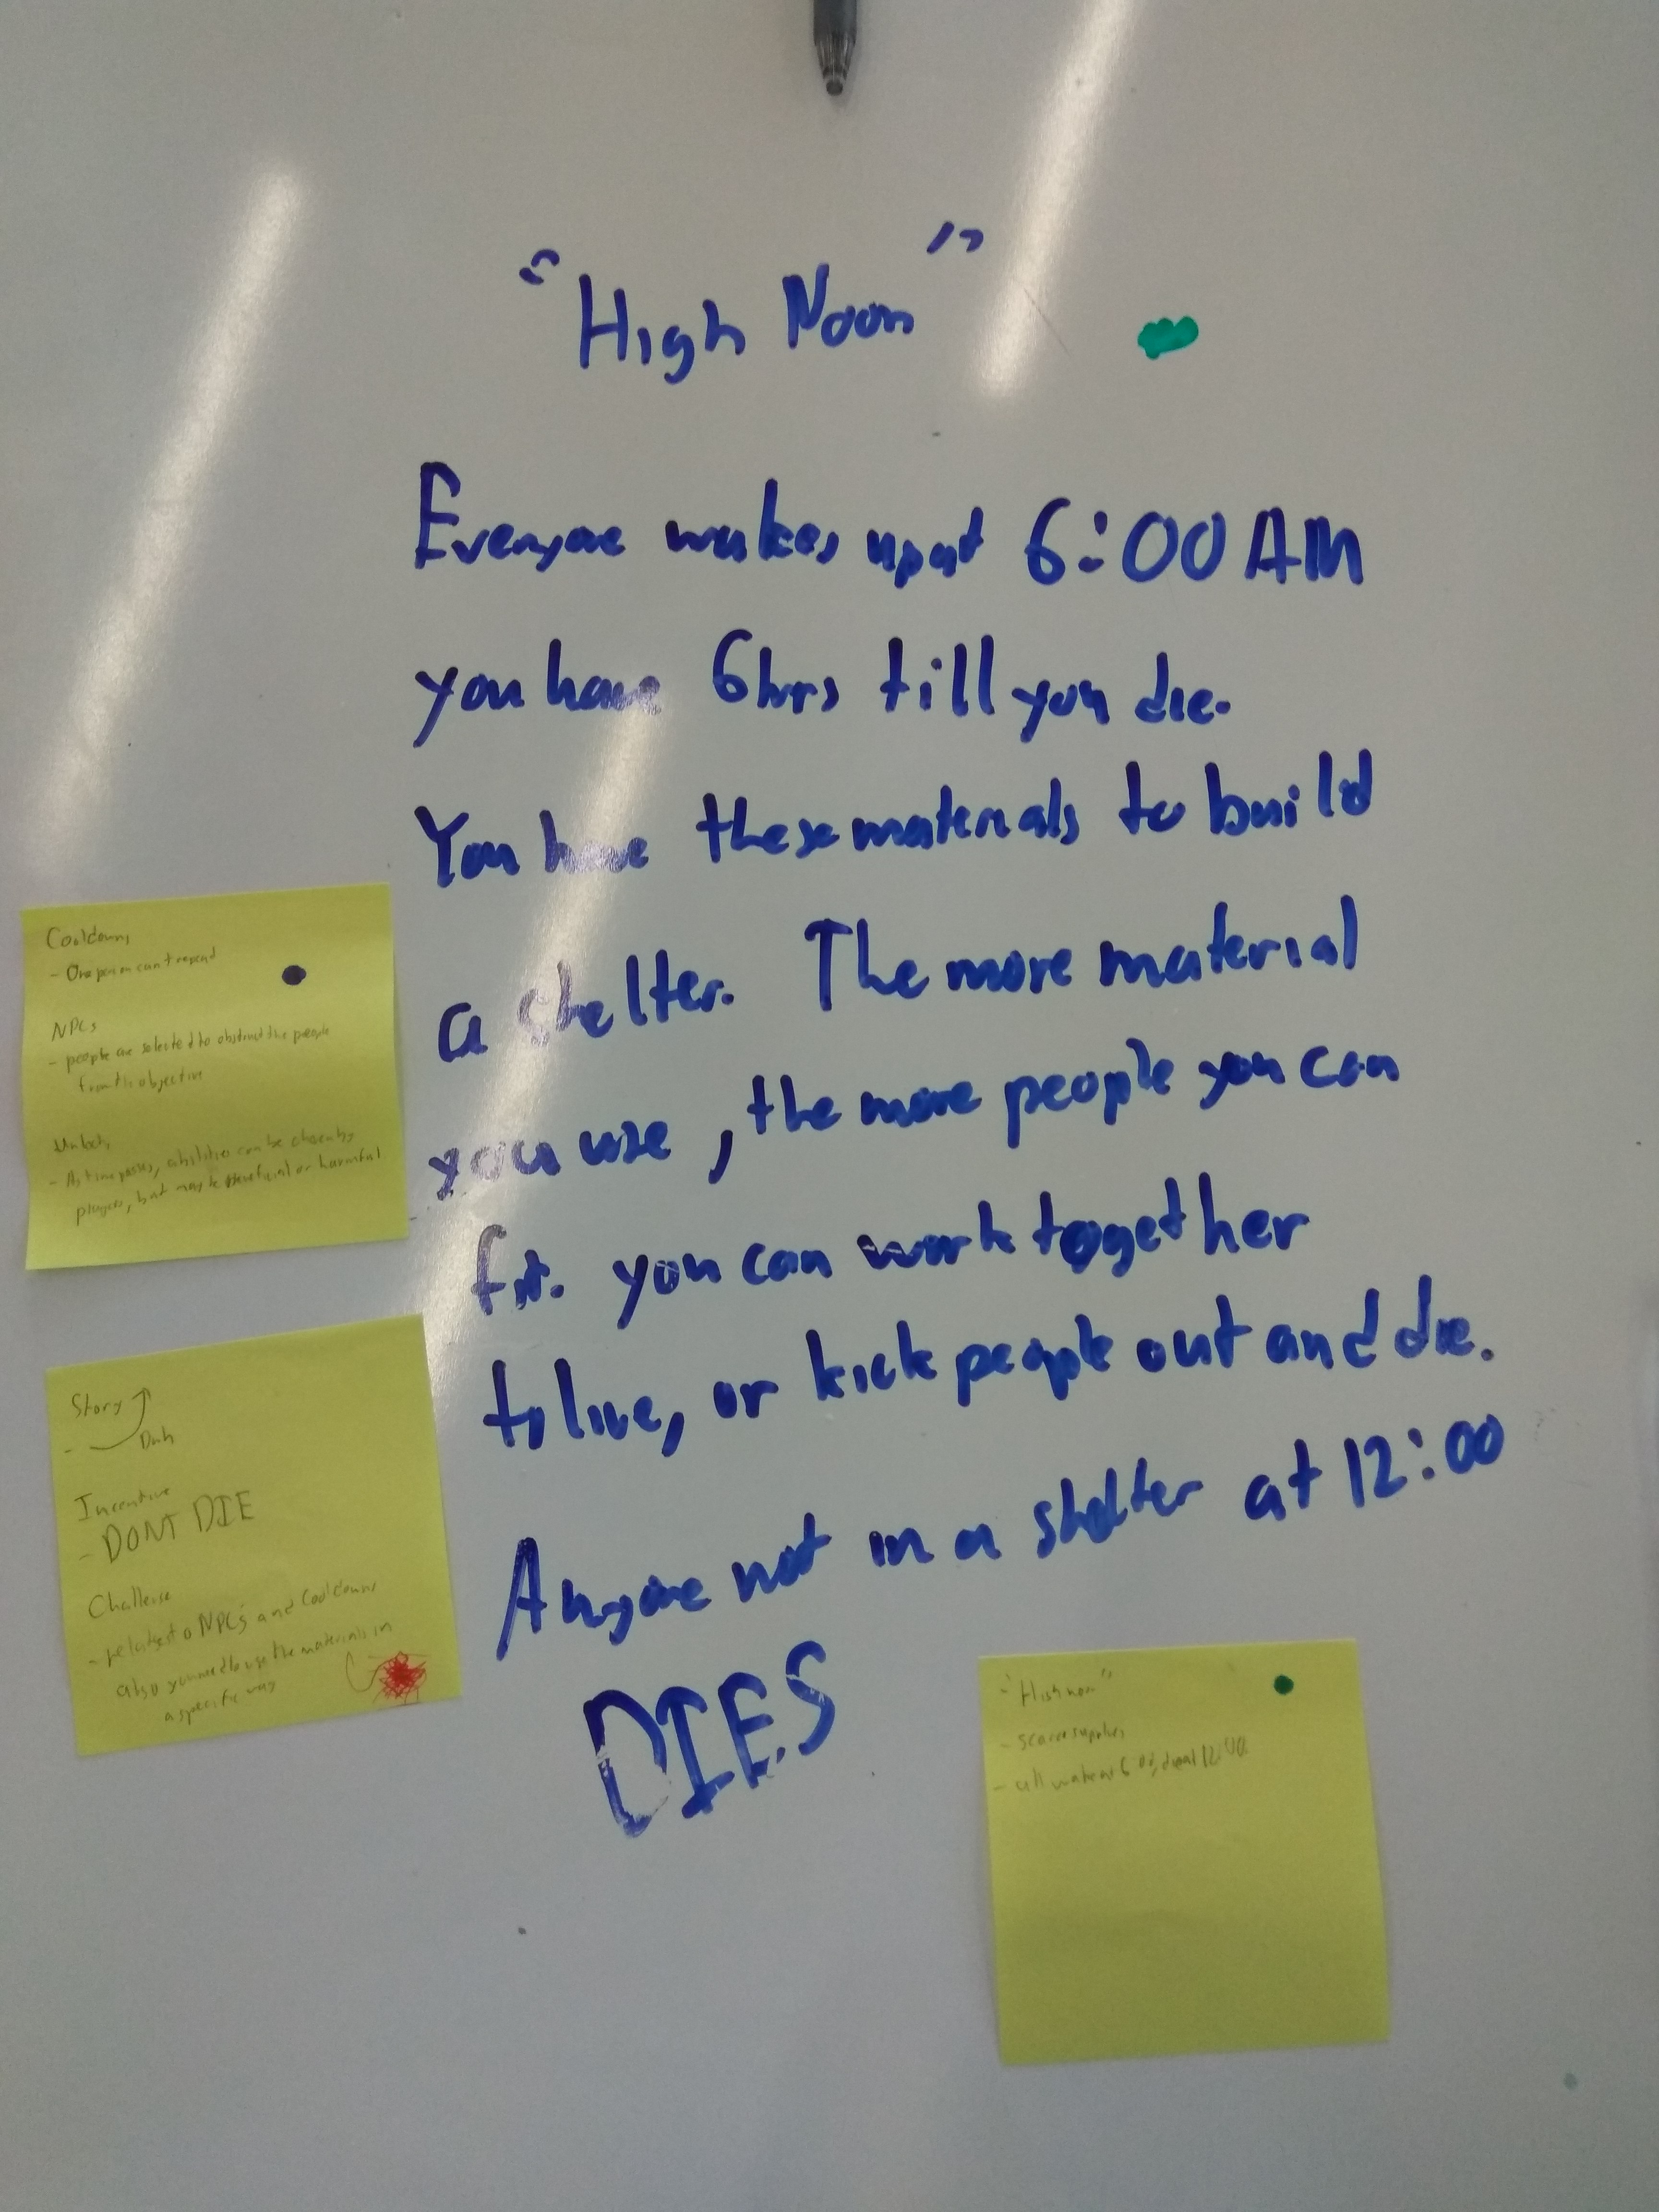 "High Noon"
Everyone wakes up at 6:00 AM
you have 6hrs till you die.
You have these materials to build
a shelter. The more material
you use, the more people you can
fit. you can work together
to live, or kick people out and die.
Anyone not in a shelter at 12:00
DIES
Cooldowns
- One person can't repeat
NPCs
- people are selected to obstruct the people
from the objective
Unlocks
- As time passes, abilities can be chosen by
players, but may be beneficial or harmful
Story
- Duh
Incentive
- DONT DIE
Challenge
- related to NPCs and Cooldowns
also you need to use the materials in
a specific way
"High noon"
- scarce supplies
- all wake at 6 00, die at 12:00